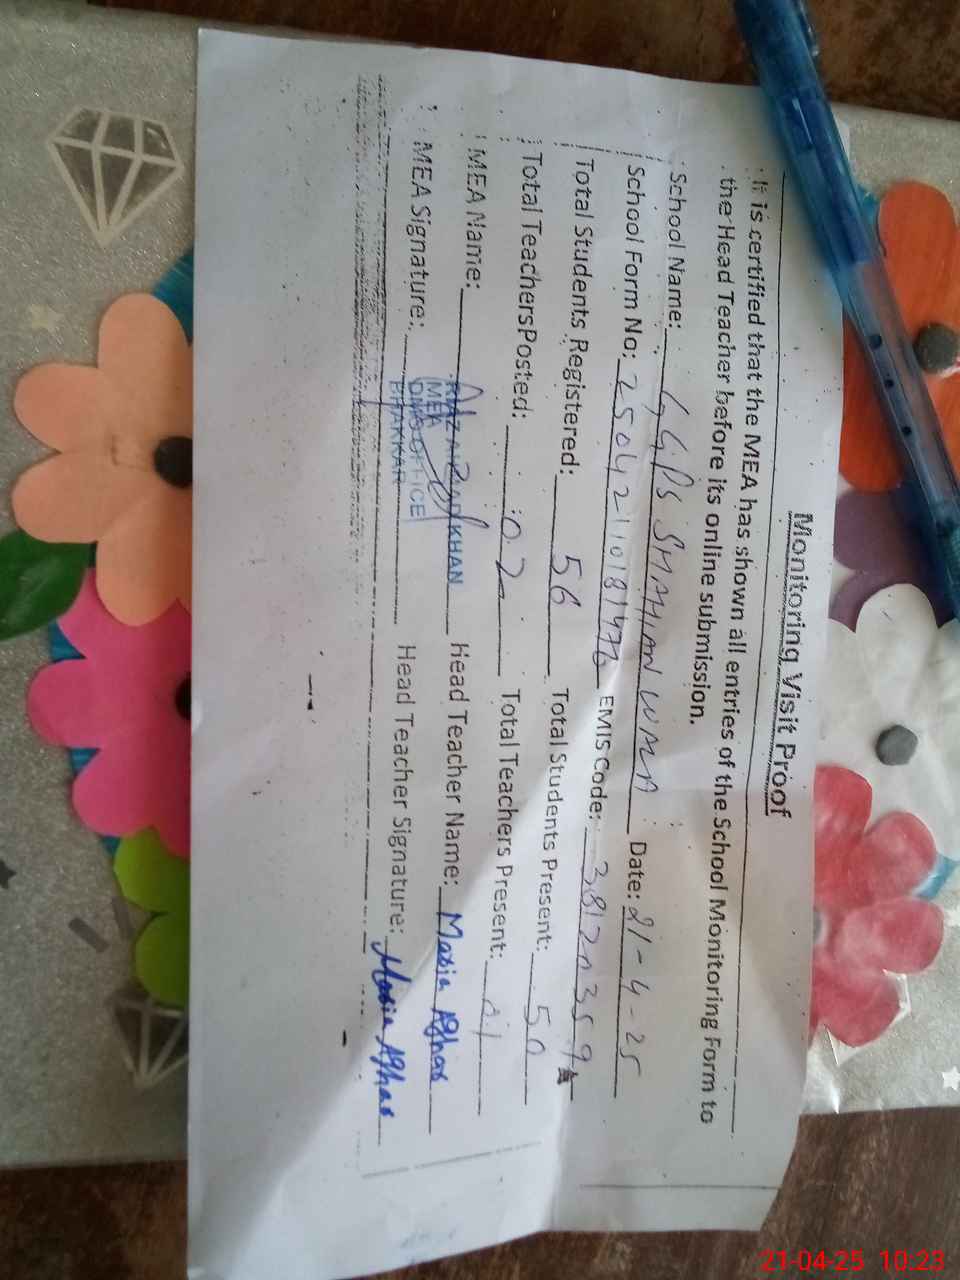 Monitoring Visit Proof
It is certified that the MEA has shown all entries of the School Monitoring Form to
the Head Teacher before its online submission.
School Name: GGPS SHAHIAN WALA Date: 21-4-25
School Form No: EMIS Code:
Total Students Registered: 56 Total Students Present: 50
Total TeachersPosted: 02 Total Teachers Present: 01
MEA Name: KHAN Head Teacher Name: Maria Afhar
MEA Signature: Head Teacher Signature: Maria Afhar
MEA
OFFICE
BHAKKAR
21-04-25 10:23